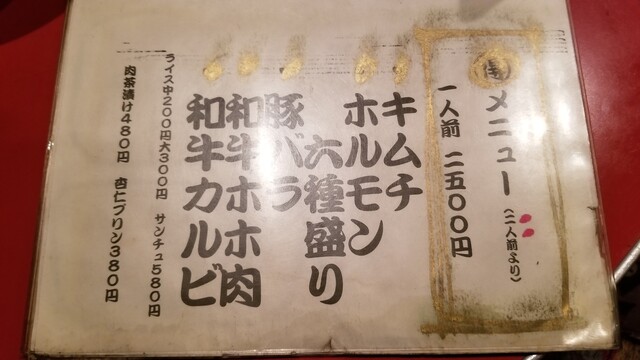 メニュー(二人前より)
一人前 二五〇〇円
キムチ
ホルモン
六種盛り
豚バラ
和牛ホホ肉
和牛カルビ
ライス中200円大300円 サンチュ580円
肉茶漬け480円 杏仁プリン380円